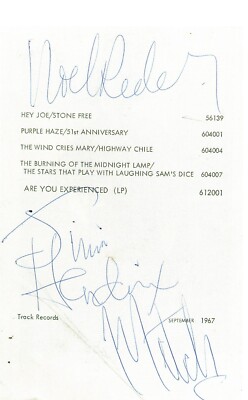 Noel Redding
HEY JOE/STONE FREE 56139
PURPLE HAZE/51st ANNIVERSARY 604001
THE WIND CRIES MARY/HIGHWAY CHILE 604004
THE BURNING OF THE MIDNIGHT LAMP/
THE STARS THAT PLAY WITH LAUGHING SAM'S DICE 604007
ARE YOU EXPERIENCED (LP) 612001
Jimi
Hendrix
Mitch
Track Records SEPTEMBER 1967